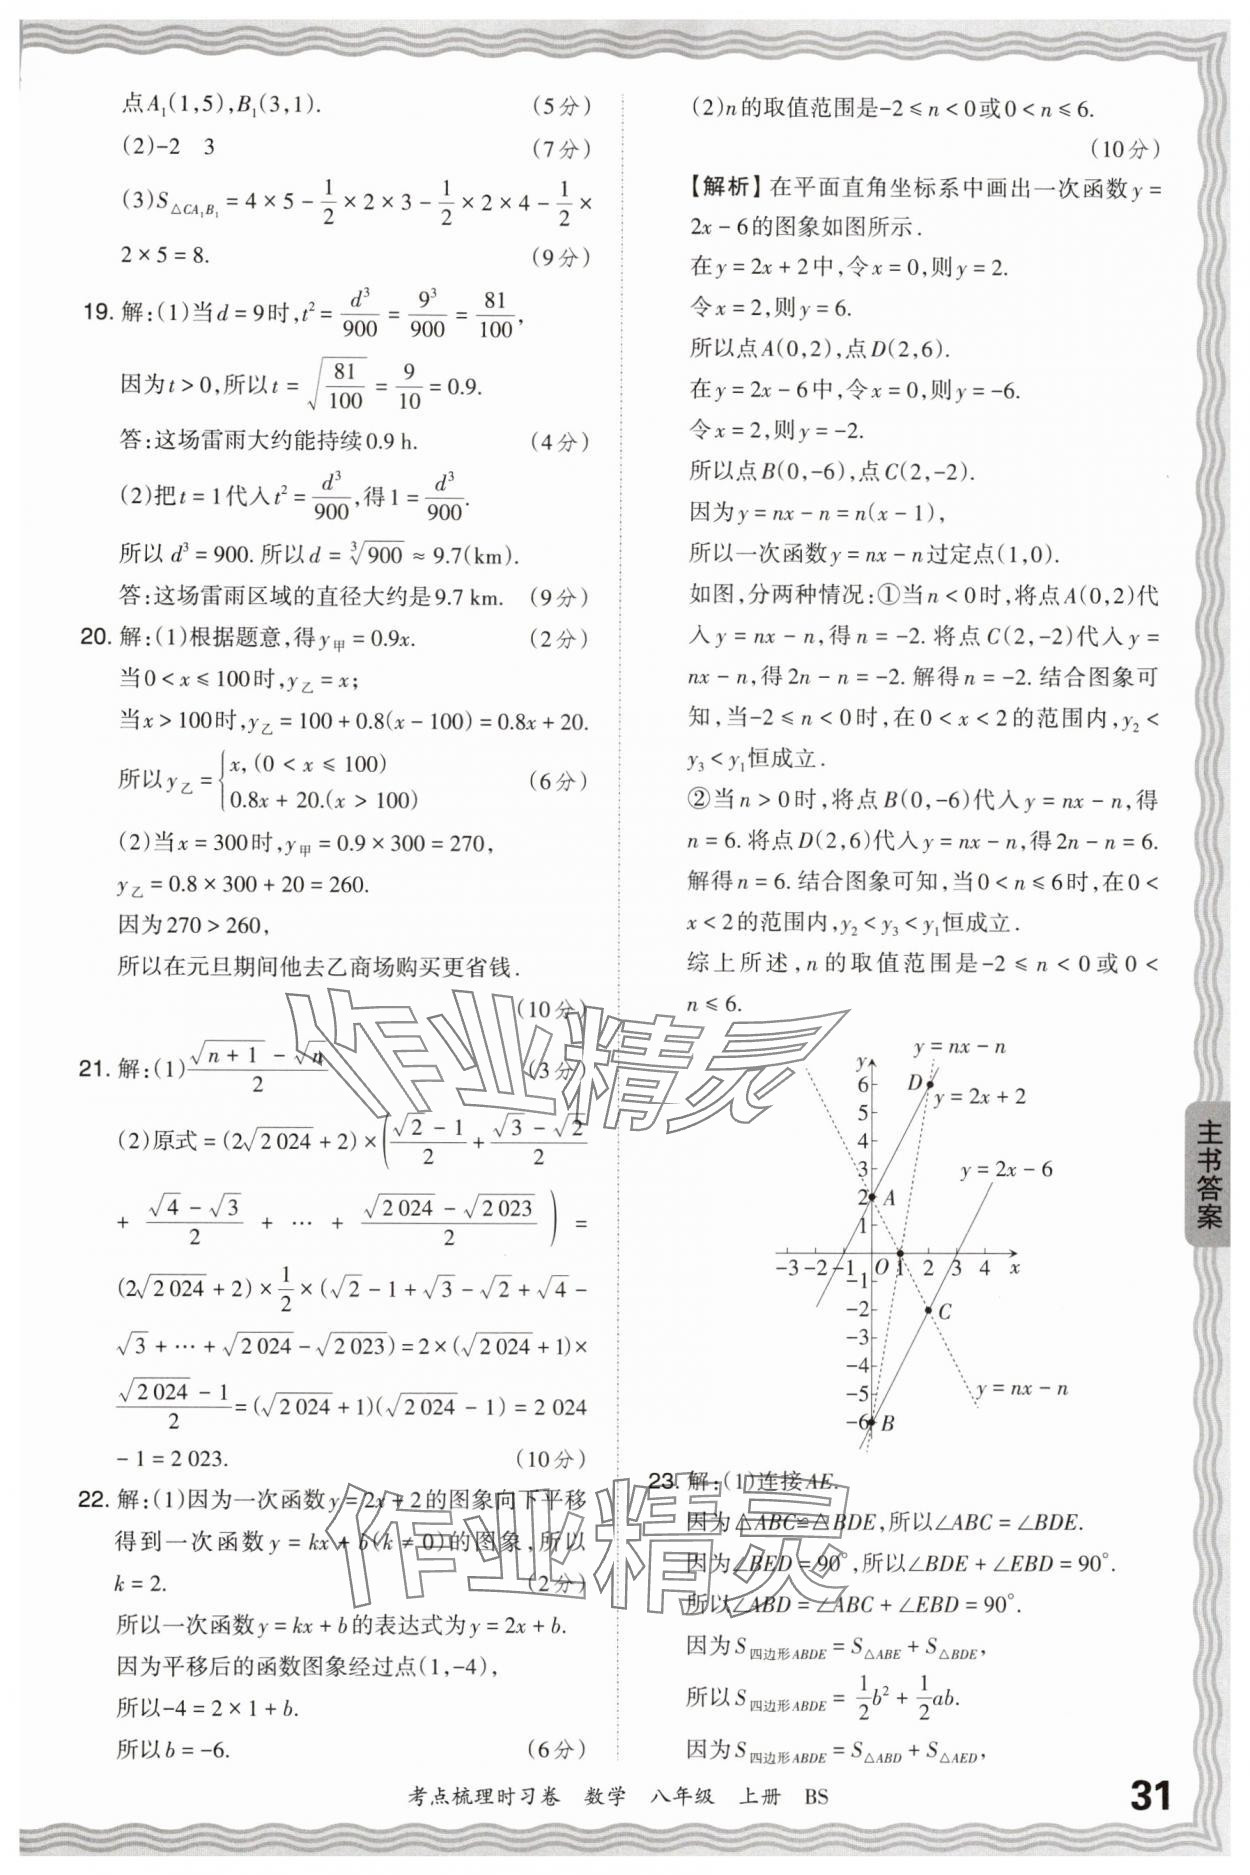 点A₁(1,5),B₁(3,1). (5分)
(2)-2 3 (7分)
(3)S△CA₁B₁ = 4×5 - 1/2 ×2×3 - 1/2 ×2×4 - 1/2 ×
2×5 = 8. (9分)
19. 解:(1)当d = 9时,t² = d³/900 = 9³/900 = 81/100,
因为t > 0,所以t = √(81/100) = 9/10 = 0.9.
答:这场雷雨大约能持续0.9 h. (4分)
(2)把t = 1代入t² = d³/900,得1 = d³/900.
所以 d³ = 900. 所以d = ³√900 ≈ 9.7(km).
答:这场雷雨区域的直径大约是9.7 km. (9分)
20. 解:(1)根据题意,得y甲 = 0.9x. (2分)
当0 < x ⩽ 100时,y乙 = x;
当x > 100时,y乙 = 100 + 0.8(x - 100) = 0.8x + 20.
所以y乙 = {x,(0 < x ⩽ 100)
0.8x + 20.(x > 100) (6分)
(2)当x = 300时,y甲 = 0.9×300 = 270,
y乙 = 0.8×300 + 20 = 260.
因为270 > 260,
所以在元旦期间他去乙商场购买更省钱.
(10分)
21. 解:(1)(√(n+1) - √n)/2 (3分)
(2)原式 = (2√2 024 + 2)×((√2 - 1)/2 + (√3 - √2)/2
+ (√4 - √3)/2 + … + (√2 024 - √2 023)/2) =
(2√2 024 + 2)×1/2×(√2 - 1 + √3 - √2 + √4 -
√3 + … + √2 024 - √2 023) = 2×(√2 024 + 1)×
(√2 024 - 1)/2 = (√2 024 + 1)(√2 024 - 1) = 2 024
- 1 = 2 023. (10分)
22. 解:(1)因为一次函数y = 2x + 2的图象向下平移
得到一次函数y = kx + b(k ≠ 0)的图象,所以
k = 2. (2分)
所以一次函数y = kx + b的表达式为y = 2x + b.
因为平移后的函数图象经过点(1,-4),
所以-4 = 2×1 + b.
所以b = -6. (6分)
(2)n的取值范围是-2 ⩽ n < 0或0 < n ⩽ 6.
(10分)
【解析】在平面直角坐标系中画出一次函数y =
2x - 6的图象如图所示.
在y = 2x + 2中,令x = 0,则y = 2.
令x = 2,则y = 6.
所以点A(0,2),点D(2,6).
在y = 2x - 6中,令x = 0,则y = -6.
令x = 2,则y = -2.
所以点B(0,-6),点C(2,-2).
因为y = nx - n = n(x - 1),
所以一次函数y = nx - n过定点(1,0).
如图,分两种情况:①当n < 0时,将点A(0,2)代
入y = nx - n,得n = -2. 将点C(2,-2)代入y =
nx - n,得2n - n = -2. 解得n = -2. 结合图象可
知,当-2 ⩽ n < 0时,在0 < x < 2的范围内,y₂ <
y₃ < y₁恒成立.
②当n > 0时,将点B(0,-6)代入y = nx - n,得
n = 6. 将点D(2,6)代入y = nx - n,得2n - n = 6.
解得n = 6. 结合图象可知,当0 < n ⩽ 6时,在0 <
x < 2的范围内,y₂ < y₃ < y₁恒成立.
综上所述,n的取值范围是-2 ⩽ n < 0或0 <
n ⩽ 6.
y = nx - n
y
6
D
5
y = 2x + 2
4
3
y = 2x - 6
2
A
1
-3 -2 -1 O 1 2 3 4 x
-1
-2
C
-3
-4
-5
y = nx - n
-6
B
23. 解:(1)连接AE.
因为△ABC≌△BDE,所以∠ABC = ∠BDE.
因为∠BED = 90°,所以∠BDE + ∠EBD = 90°.
所以∠ABD = ∠ABC + ∠EBD = 90°.
因为S四边形ABDE = S△ABE + S△BDE,
所以S四边形ABDE = 1/2 b² + 1/2 ab.
因为S四边形ABDE = S△ABD + S△AED,
主书答案
考点梳理时习卷 数学 八年级 上册 BS
31
作业精灵
作业精灵